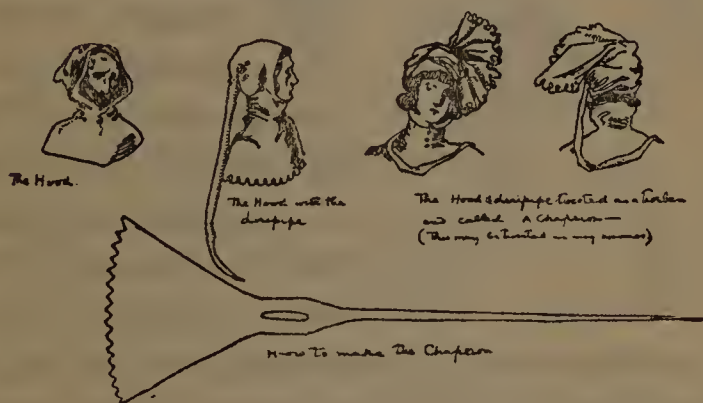 The Hood.
The Hood with the
liripipe
The Hood & liripipe twisted as a Turban
and called A Chaperon—
(This may be twisted in any manner)
How to make the Chaperon